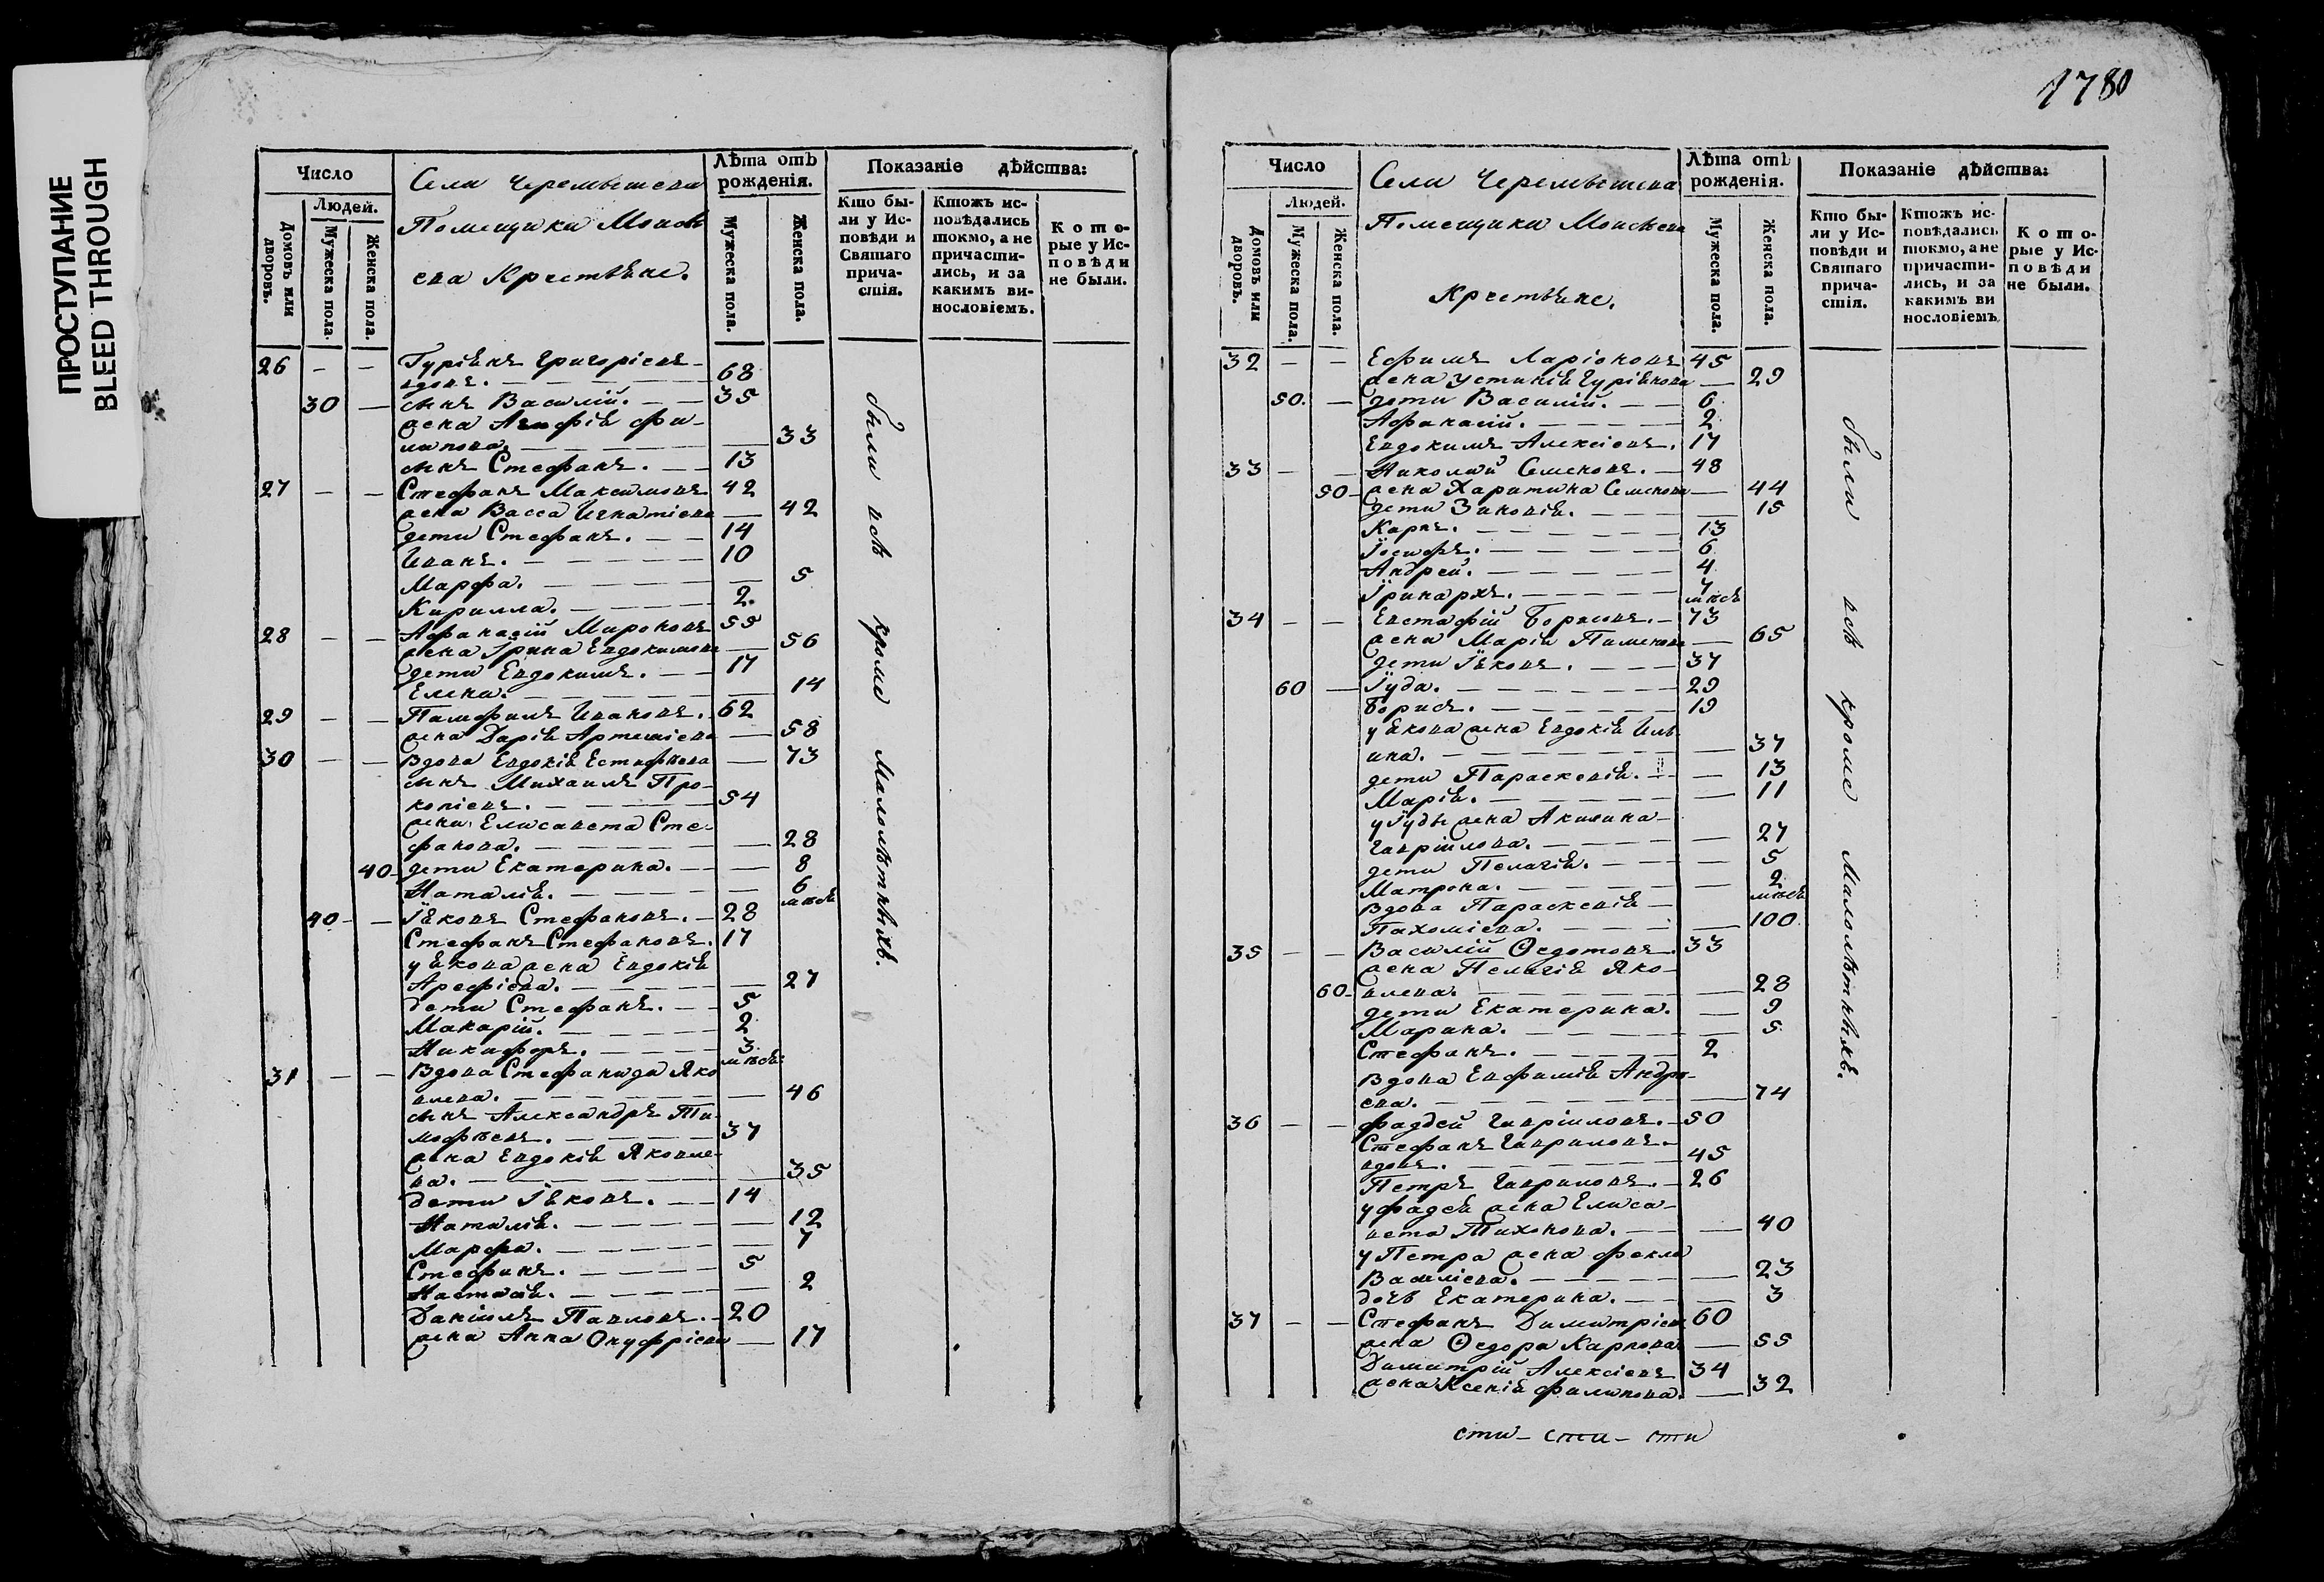 ПРОСТУПАНИЕ
BLEED THROUGH
Число
Людей.
Домовъ или дворовъ.
Мужеска пола.
Женска пола.
Села Черемышева
Помещика Моисѣ
ева Крестьяне.
Лѣта отъ рожденія.
Мужеска пола.
Женска пола.
Показаніе дѣйства:
Кто бы-
ли у Ис-
повѣди и
Святаго
прича-
стія.
Ктожъ ис-
повѣдались
токмо, а не
причасти-
лись, и за
какимъ ви-
нословіемъ.
Кото-
рые у Ис-
повѣди
не были.
26 — — Гуріянъ Григоріевъ
вдовъ. 68
30 — сынъ Василій. 35
жена Агафія Фи-
липова. — 33
сынъ Стефанъ. 13
27 — — Стефанъ Максимовъ 42
жена Васса Игнатіева — 42
дети Стефанъ. 14
Иванъ. 10
Марфа. — 5
Кирилла. 2.
28 — — Афанасій Мироновъ 55
жена Ірина Евдокимова — 56
дети Евдокимъ. 17
Елена. — 14
29 — — Памфилъ Ивановъ. 62
жена Дарія Артеміева — 58
30 — — Вдова Евдокія Естифѣева — 73
сынъ Михаилъ Про-
копіевъ. 54
жена Елисавета Сте-
фанова. — 28
40 дети Екатерина. — 8
Наталія. — 6
мѣсѣ
40 — Іяковъ Стефановъ. 28
Стефанъ Стефановъ. 17
у Якова жена Евдокія
Арефіева. — 27
дети Стефанъ. 5
Макарій. 2
Никифоръ. 3
мѣсѣ:
31 — — Вдова Стефанида Яко
влева. — 46
сынъ Александръ Ти-
мофѣевъ. 37
жена Евдокія Яковле-
ва. — 35
дети Іяковъ. 14
Наталія. — 12
Марфа. — 7
Стефанъ. 5
Настасія. — 2
Даніилъ Павловъ. 20
жена Анна Онуфріева — 17
были всѣ кромѣ малолѣтныхъ.
1780
Число
Людей.
Домовъ или дворовъ.
Мужеска пола.
Женска пола.
Села Черемышева
Помещика Моисѣева
Крестьяне.
Лѣта отъ рожденія.
Мужеска пола.
Женска пола.
Показаніе дѣйства:
Кто бы-
ли у Ис-
повѣди и
Святаго
прича-
стія.
Ктожъ ис-
повѣдались
токмо, а не
причасти-
лись, и за
какимъ ви
нословіемъ
Кото-
рые у Ис-
повѣди
не были.
32 — — Ефимъ Ларіоновъ 45
жена Устинія Гуріянова — 29
50. — дети Василій. 6
Афанасій. 2
Евдокимъ Алексіевъ. 17
33 — — Николай Семеновъ. 48
50 жена Харитина Семенова — 44
дети Зиновія. — 15
Карпъ. 13
Іосифъ. 6
Андрей. 4
Іринархъ. 7
мѣсѣ
34 — — Евстафій Борисовъ. 73
жена Марія Пименова — 65
дети Іяковъ. 37
60 — Іуда. 29
Борисъ. 19
у Якова жена Евдокія Иль
ина. — 37
дети Параскевія. — 13
Марія. — 11
у Іуды жена Акилина
Гавріилова. — 27
дети Пелагія. — 5
Матрона. — 2
мѣсѣ
Вдова Параскевія
Пахоміева. — 100
35 — — Василій Ѳедотовъ. 33
жена Пелагія Яко-
60 влева. — 28
дети Екатерина. — 9
Марина. — 5
Стефанъ. 2
Вдова Евфимія Андре-
ева. — 74
36 — — Фаддей Гавріиловъ. 50
Стефанъ Гавриловъ
вдовъ. 45
Петръ Гавриловъ. 26
у Фадея жена Елиса-
вета Тихонова. — 40
у Петра жена Фекла
Василіева. — 23
дочь Екатерина. — 3
37 — — Стефанъ Димитріевъ 60
жена Ѳедора Карпова — 55
Димитрій Алексіевъ 34
жена Ксенія Филипова. — 32
были всѣ кромѣ малолѣтныхъ.
сти — сти — сти